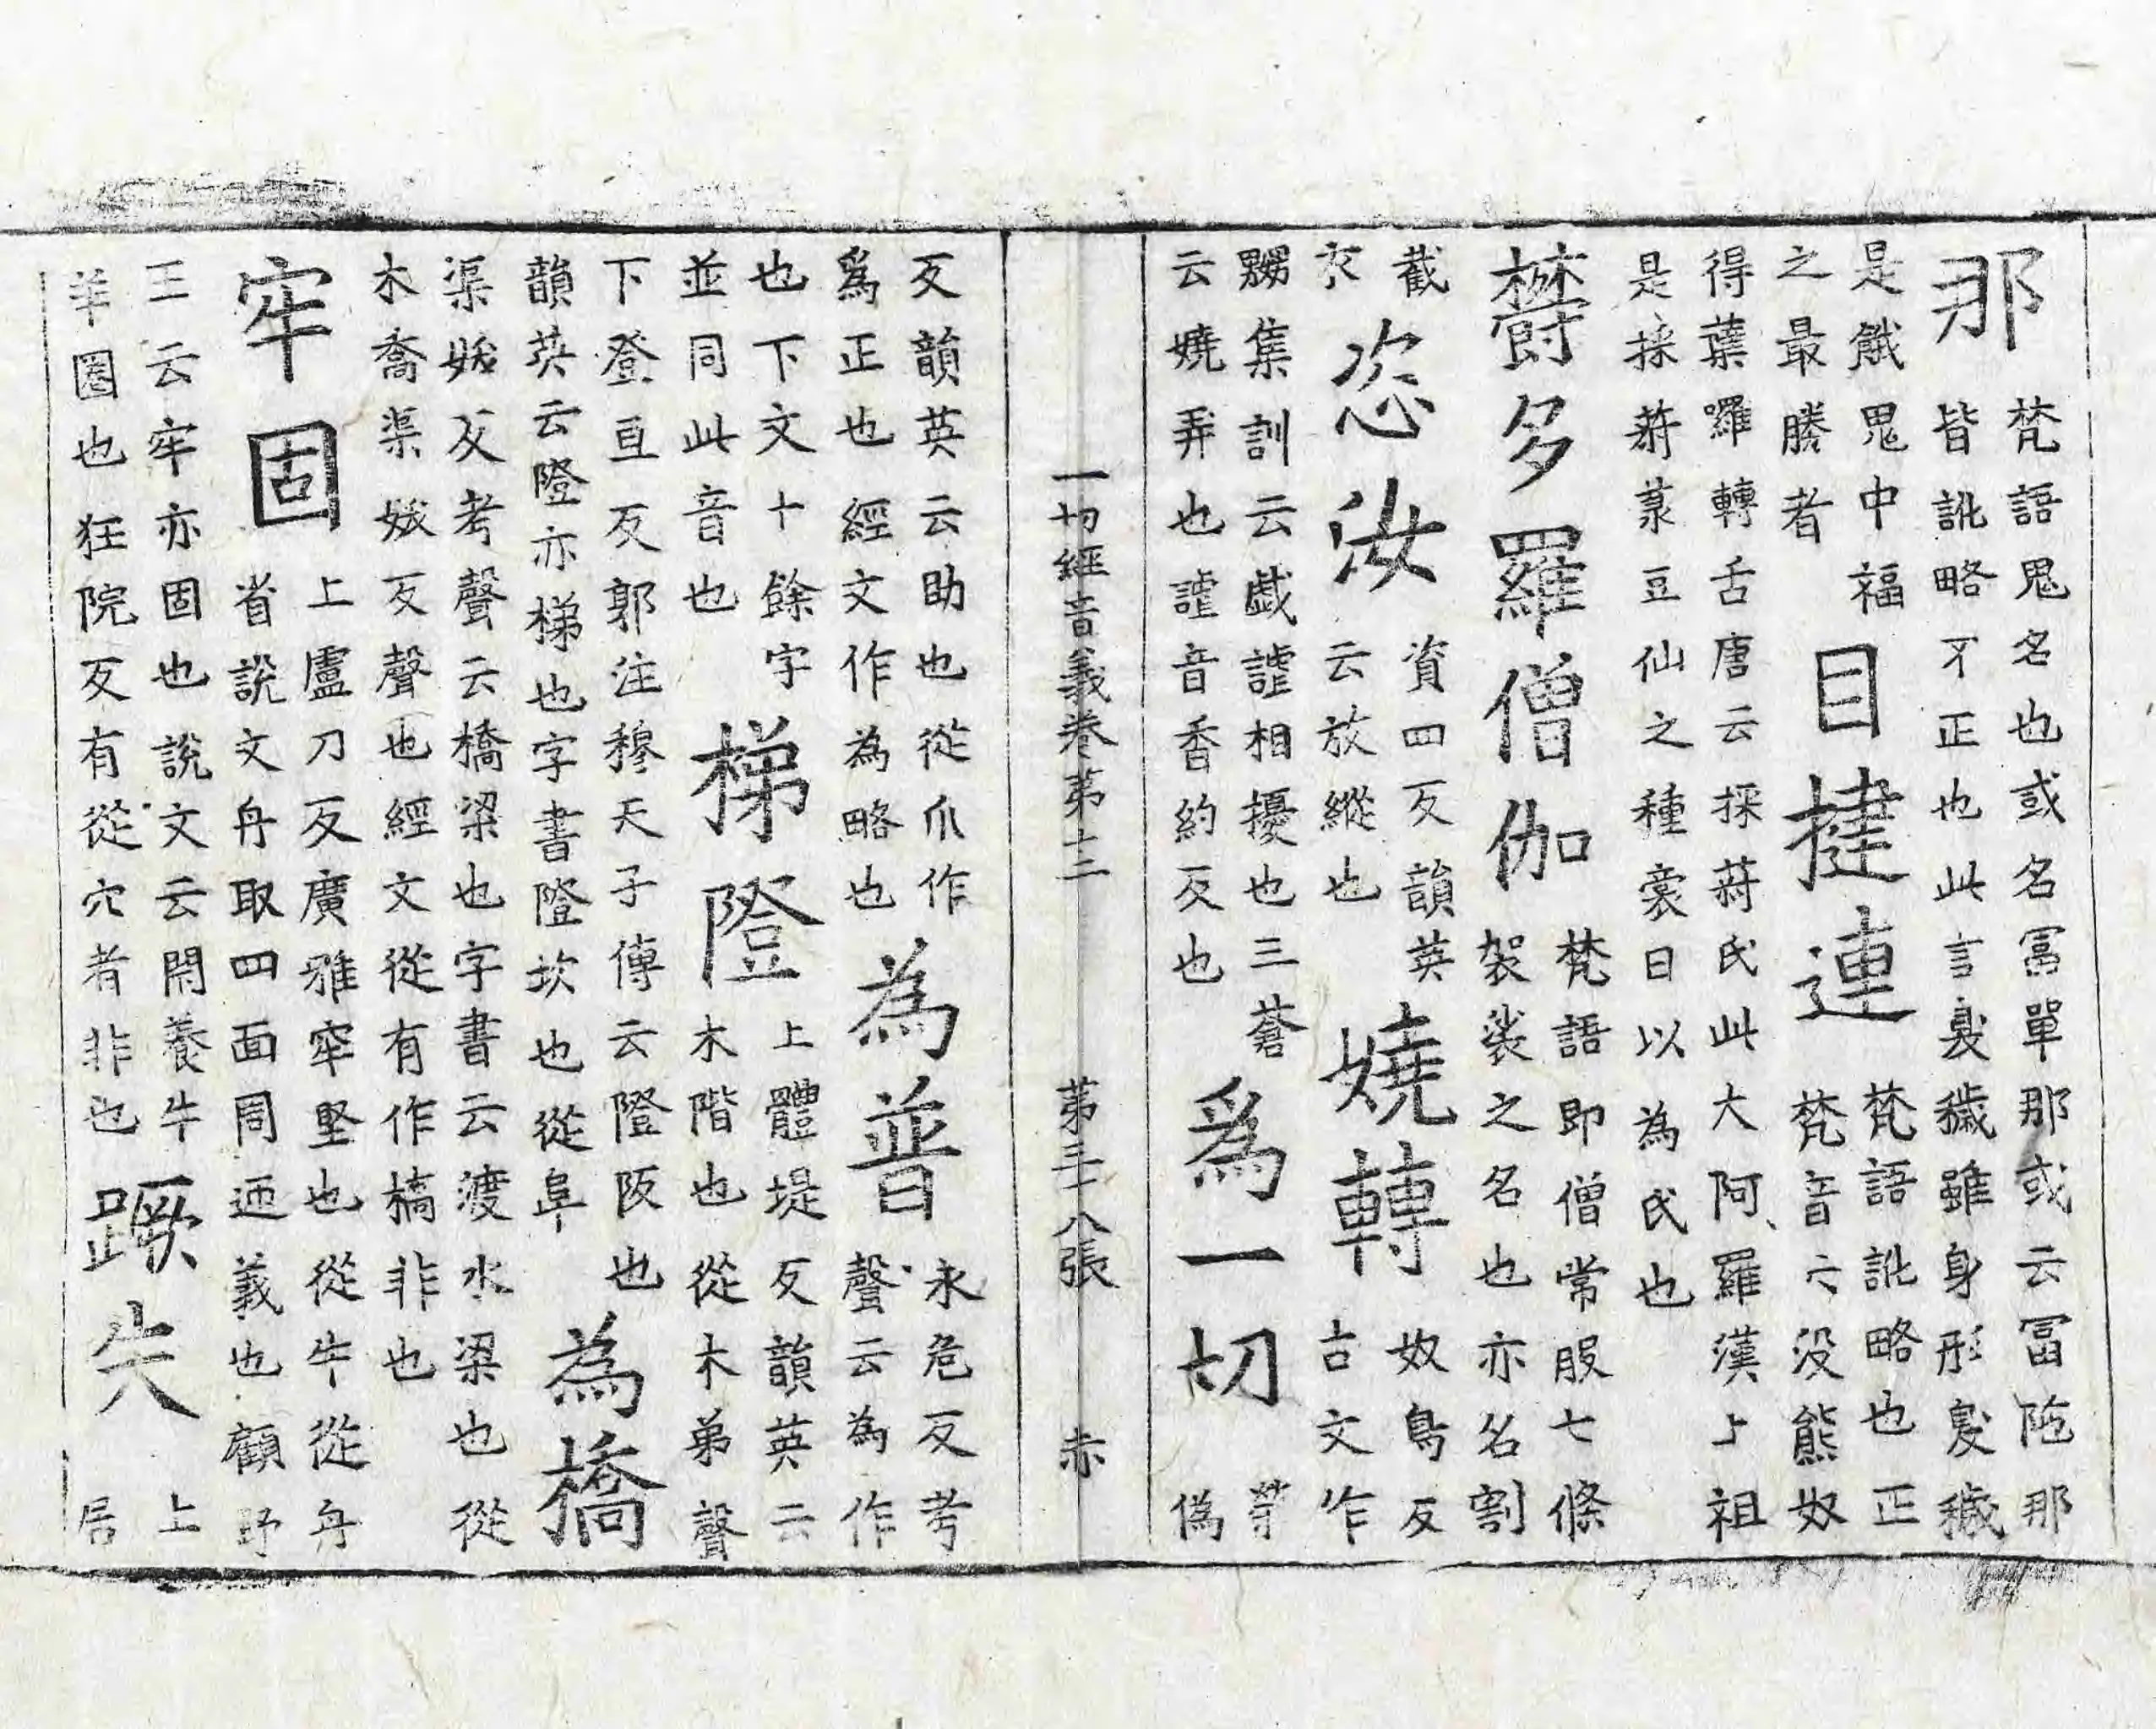 那 梵語鬼名也或名冨單那或云冨陁那那皆訛略不正也此言臭穢雖身形臭穢
是餓鬼中福之最勝者 目揵連 梵語訛略也正梵音云没熊奴
得葉囉轉舌唐云採蔣氏此大阿羅漢上祖是採蔣菉豆仙之種裔因以為氏也
欝多羅僧伽 梵語即僧常服七條袈裟之名也亦名割
截衣 恣汝 資四反韻英云放縱也 嬈轉 奴鳥反古文作
嬲集訓云戲謔相擾也三蒼云嬈弄也謔音香約反也 爲一切 䓁偽
一切經音義卷第十二 第三十八張 赤
反韻英云助也從爪作爲正也經文作為略也 為普 永危反考聲云為作
也下文十餘字並同此音也 梯隥 上體堤反韻英云木階也從木弟聲
下登亘反郭注穆天子傳云隥阪也韻英云隥亦梯也字書隥坎也從阜 為橋
渠妖反考聲云橋梁也字書云渡水梁也從木喬渠妖反聲也經文從有作槁非也
牢固 上盧刀反廣雅牢堅也從牛從舟省說文舟取四面周迊義也顧野
王云牢亦固也說文云閑養牛羊圈也狂院反有從穴者非也 蹶失 上居